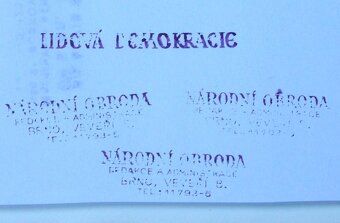 LIDOVÁ DEMOKRACIE
NÁRODNÍ OBRODA
REDAKCE A ADMINISTRACE
BRNO, VEVEŘÍ 8.
TEL: 11793-5
NÁRODNÍ OBRODA
REDAKCE A ADMINISTRACE
BRNO, VEVEŘÍ
NÁRODNÍ OBRODA
REDAKCE A ADMINISTRACE
BRNO, VEVEŘÍ 8.
TEL: 11793-5